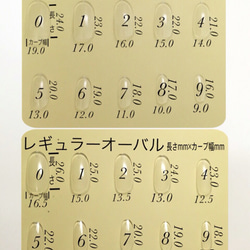 長さ
カーブ幅
0 1 2 3 4
24.0 23.0 22.0 22.0 21.0
19.0 17.0 16.0 15.0 14.0
5 6 7 8 9
20.0 19.0 18.0 17.0 16.0
13.0 12.0 11.0 10.0 9.0
レギュラーオーバル 長さmm×カーブ幅mm
長さ
カーブ幅
0 1 2 3 4
26.0 25.0 25.0 24.0 23.0
16.5 15.0 13.5 13.0 12.5
5 6 7 8 9
22.0 22.0 20.0 19.0 18.0